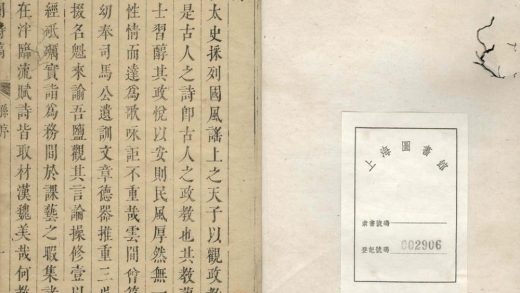 上海圖書館
索書號碼
登記號碼 002906
太史採列國風謠上之天子以觀政教
是古人之詩卽古人之政教也其教
士習醇其政悅以安則民風厚然無一
性情而達爲歌咏詎不重哉雲間曾
幼奉司馬公遺訓文章德器推重三
掇名魁來諭吾鹽觀其言論操修壹以
經砥礪實詣爲務間於課藝之暇集
在泮臨流賦詩皆取材漢魏美哉何教